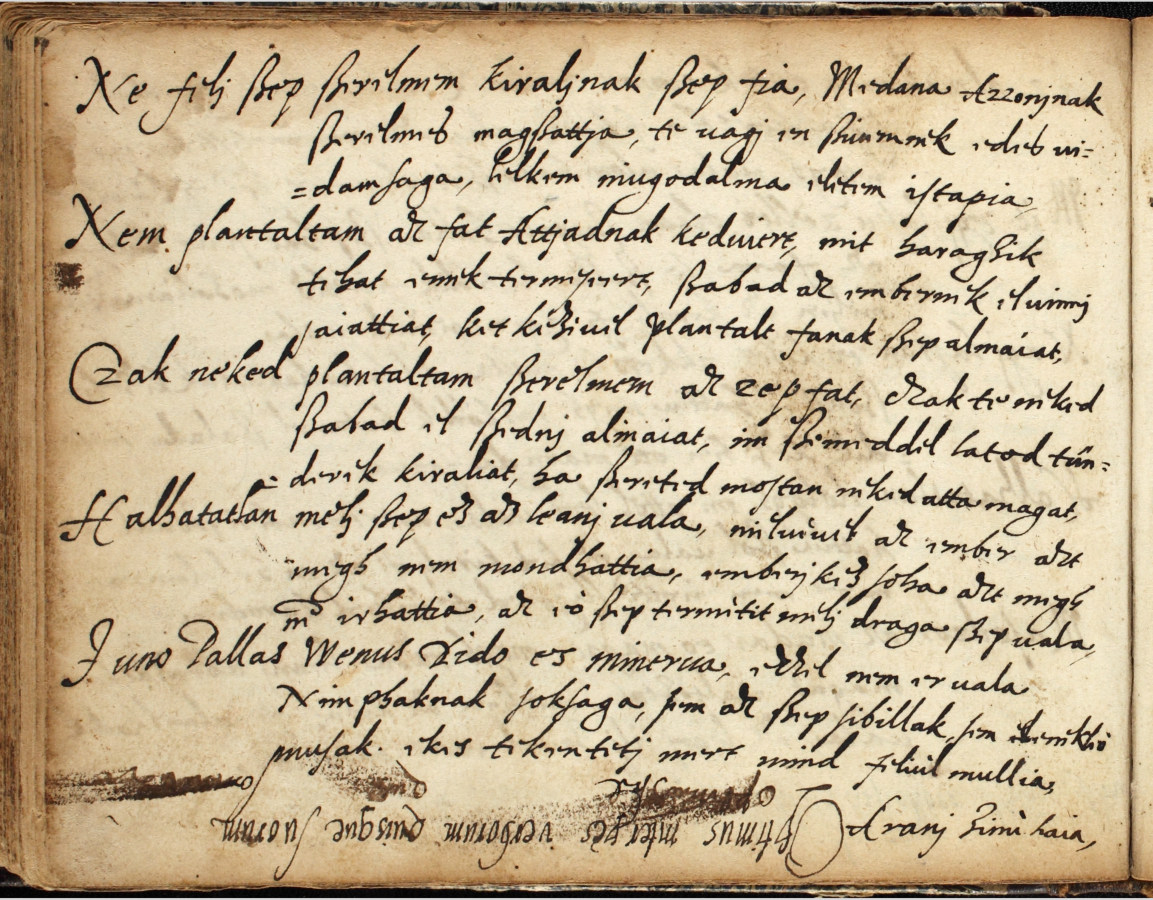 Ne felj ßep ßerelmem kiralјnak ßep fia, Medana Azzonjnak
ßerelmes magßattja, te vagj en ßiuemnek edes vi=
=damsaga, lelkem niugodalma eletem istapia,
Nem plantaltam az fat Attjadnak keduiert, mit haragßik
tehat ennek termeseert, ßabad az embernek eluinnj
saiattiat, ket keßiuel plantalt fanak ßep almaiat,
Czak neked plantaltam ßerelmem az zep fat, czak te neked
ßabad el ßednj almaiat, im ßemeddel latod tün=
=derek kiraliat, ha ßereted mostan neked atta magat,
Halhatatlan melj ßep ez az leanj uala, nieluiuel az ember azt
megh nem mondhattia, emberj kéß soha azt megh
nē irhattia, az eö ßep termetit melj draga ßep uala,
Juno Pallas Wenus Dido es minerua, ezzel nem er uala
Nimphaknak soksaga, sem az ßep sibillak, sem eneklö
musak. ekes tekentetj mert mind feliül mullia,
Aranj ßinü haia,
optimus interpres verborum quisque suorum